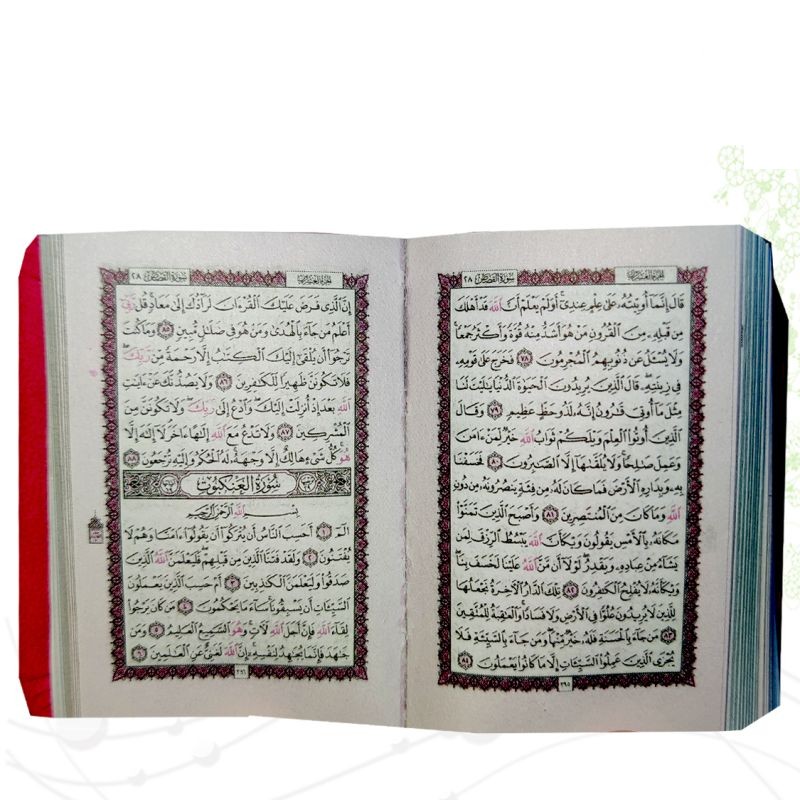 الجزء العشرون سورة القصص ٢٨
قَالَ إِنَّمَآ أُوتِيتُهُۥ عَلَىٰ عِلْمٍ عِندِىٓ ۚ أَوَلَمْ يَعْلَمْ أَنَّ ٱللَّهَ قَدْ أَهْلَكَ
مِن قَبْلِهِۦ مِنَ ٱلْقُرُونِ مَنْ هُوَ أَشَدُّ مِنْهُ قُوَّةً وَأَكْثَرُ جَمْعًا ۚ
وَلَا يُسْـَٔلُ عَن ذُنُوبِهِمُ ٱلْمُجْرِمُونَ ٧٨ فَخَرَجَ عَلَىٰ قَوْمِهِۦ
فِى زِينَتِهِۦ ۖ قَالَ ٱلَّذِينَ يُرِيدُونَ ٱلْحَيَوٰةَ ٱلدُّنْيَا يَـٰلَيْتَ لَنَا
مِثْلَ مَآ أُوتِىَ قَـٰرُونُ إِنَّهُۥ لَذُو حَظٍّ عَظِيمٍ ٧٩ وَقَالَ
ٱلَّذِينَ أُوتُوا۟ ٱلْعِلْمَ وَيْلَكُمْ ثَوَابُ ٱللَّهِ خَيْرٌ لِّمَنْ ءَامَنَ
وَعَمِلَ صَـٰلِحًا ۚ وَلَا يُلَقَّىٰهَآ إِلَّا ٱلصَّـٰبِرُونَ ٨٠ فَخَسَفْنَا
بِهِۦ وَبِدَارِهِ ٱلْأَرْضَ فَمَا كَانَ لَهُۥ مِن فِئَةٍ يَنصُرُونَهُۥ مِن دُونِ
ٱللَّهِ وَمَا كَانَ مِنَ ٱلْمُنتَصِرِينَ ٨١ وَأَصْبَحَ ٱلَّذِينَ تَمَنَّوْا۟
مَكَانَهُۥ بِٱلْأَمْسِ يَقُولُونَ وَيْكَأَنَّ ٱللَّهَ يَبْسُطُ ٱلرِّزْقَ لِمَن
يَشَآءُ مِنْ عِبَادِهِۦ وَيَقْدِرُ ۖ لَوْلَآ أَن مَّنَّ ٱللَّهُ عَلَيْنَا لَخَسَفَ بِنَا ۖ
وَيْكَأَنَّهُۥ لَا يُفْلِحُ ٱلْكَـٰفِرُونَ ٨٢ تِلْكَ ٱلدَّارُ ٱلْـَٔاخِرَةُ نَجْعَلُهَا
لِلَّذِينَ لَا يُرِيدُونَ عُلُوًّا فِى ٱلْأَرْضِ وَلَا فَسَادًا ۚ وَٱلْعَـٰقِبَةُ لِلْمُتَّقِينَ
٨٣ مَن جَآءَ بِٱلْحَسَنَةِ فَلَهُۥ خَيْرٌ مِّنْهَا ۖ وَمَن جَآءَ بِٱلسَّيِّئَةِ فَلَا
يُجْزَى ٱلَّذِينَ عَمِلُوا۟ ٱلسَّيِّـَٔاتِ إِلَّا مَا كَانُوا۟ يَعْمَلُونَ ٨٤
٣٩٥
الجزء العشرون سورة القصص ٢٨
إِنَّ ٱلَّذِى فَرَضَ عَلَيْكَ ٱلْقُرْءَانَ لَرَآدُّكَ إِلَىٰ مَعَادٍ ۚ قُل رَّبِّىٓ
أَعْلَمُ مَن جَآءَ بِٱلْهُدَىٰ وَمَنْ هُوَ فِى ضَلَـٰلٍ مُّبِينٍ ٨٥ وَمَا كُنتَ
تَرْجُوٓا۟ أَن يُلْقَىٰٓ إِلَيْكَ ٱلْكِتَـٰبُ إِلَّا رَحْمَةً مِّن رَّبِّكَ ۖ
فَلَا تَكُونَنَّ ظَهِيرًا لِّلْكَـٰفِرِينَ ٨٦ وَلَا يَصُدُّنَّكَ عَنْ ءَايَـٰتِ
ٱللَّهِ بَعْدَ إِذْ أُنزِلَتْ إِلَيْكَ ۖ وَٱدْعُ إِلَىٰ رَبِّكَ ۖ وَلَا تَكُونَنَّ مِنَ
ٱلْمُشْرِكِينَ ٨٧ وَلَا تَدْعُ مَعَ ٱللَّهِ إِلَـٰهًا ءَاخَرَ ۘ لَآ إِلَـٰهَ إِلَّا
هُوَ ۚ كُلُّ شَىْءٍ هَالِكٌ إِلَّا وَجْهَهُۥ ۚ لَهُ ٱلْحُكْمُ وَإِلَيْهِ تُرْجَعُونَ ٨٨
سُورَةُ العَنْكَبُوتِ
بِسْمِ ٱللَّهِ ٱلرَّحْمَـٰنِ ٱلرَّحِيمِ
الٓمٓ ١ أَحَسِبَ ٱلنَّاسُ أَن يُتْرَكُوٓا۟ أَن يَقُولُوٓا۟ ءَامَنَّا وَهُمْ لَا
يُفْتَنُونَ ٢ وَلَقَدْ فَتَنَّا ٱلَّذِينَ مِن قَبْلِهِمْ ۖ فَلَيَعْلَمَنَّ ٱللَّهُ ٱلَّذِينَ
صَدَقُوا۟ وَلَيَعْلَمَنَّ ٱلْكَـٰذِبِينَ ٣ أَمْ حَسِبَ ٱلَّذِينَ يَعْمَلُونَ
ٱلسَّيِّـَٔاتِ أَن يَسْبِقُونَا ۚ سَآءَ مَا يَحْكُمُونَ ٤ مَن كَانَ يَرْجُوا۟
لِقَآءَ ٱللَّهِ فَإِنَّ أَجَلَ ٱللَّهِ لَـَٔاتٍ ۚ وَهُوَ ٱلسَّمِيعُ ٱلْعَلِيمُ ٥ وَمَن
جَـٰهَدَ فَإِنَّمَا يُجَـٰهِدُ لِنَفْسِهِۦٓ ۚ إِنَّ ٱللَّهَ لَغَنِىٌّ عَنِ ٱلْعَـٰلَمِينَ ٦
٣٩٦